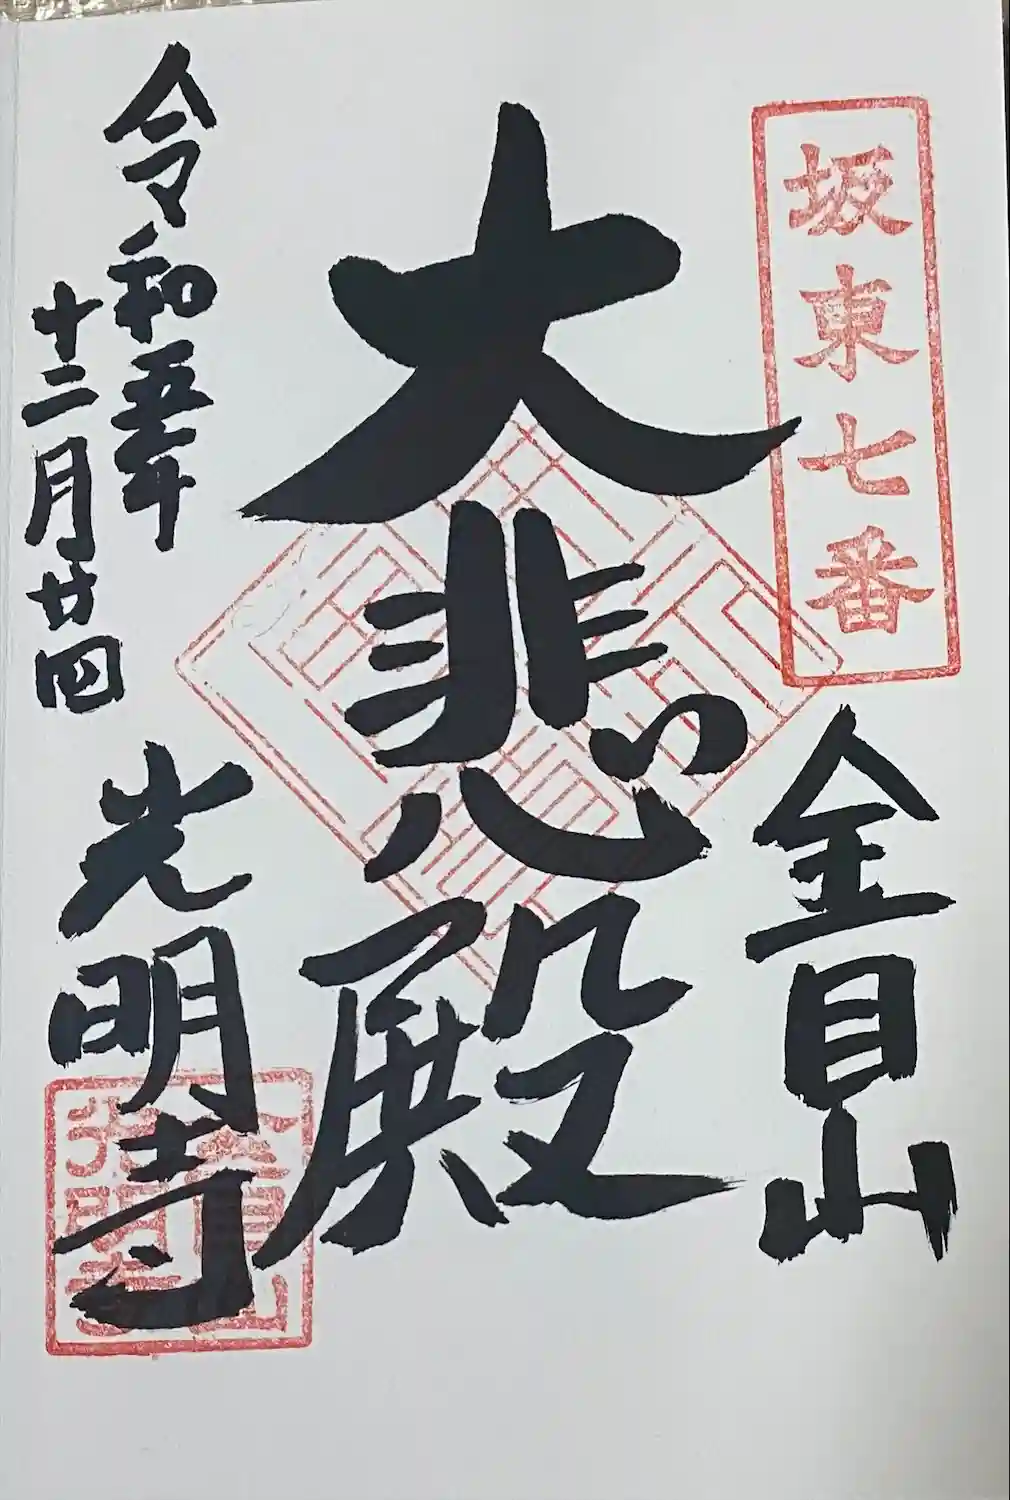 坂東七番
金目山
大悲殿
令和五年
十二月廿四
光明寺
金目山
光明寺